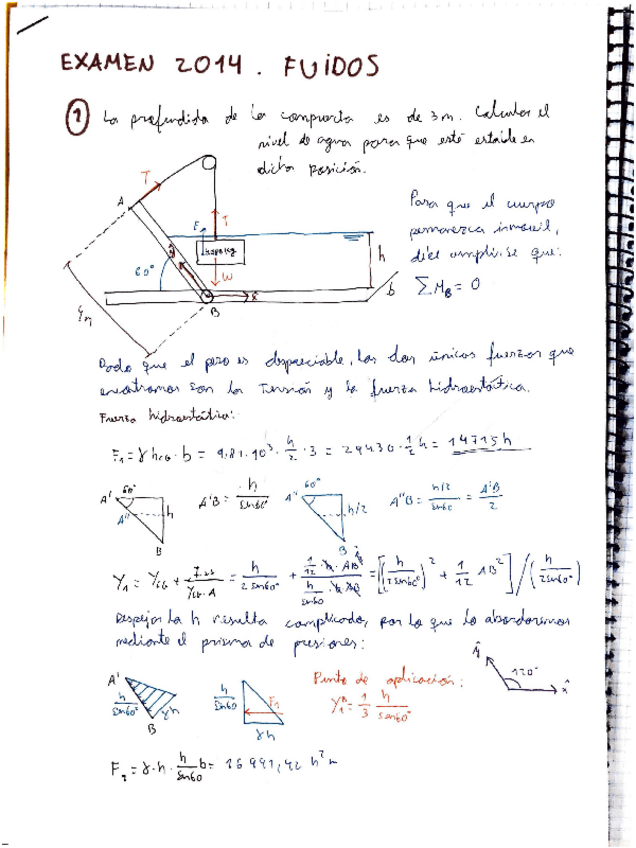 EXAMEN 2014. FUIDOS
1 La profundida de la compuerta es de 3m. Calcular el
nivel de agua para que esté estable en
dicha posición.
T
A
F
T
60°
W
h
b
B
x̂
Para que el cuerpo
permanezca inmovil,
debe cumplirse que:
ΣM_B = 0
Dado que el peso es despreciable, las dos únicas fuerzas que
encontramos son la Tensión y la fuerza hidroestática.
Fuerza hidroestática:
F₁ = γ h_CG · b = 9,81·10³ · h/2 · 3 = 29430 · 1/2 h = 14715 h
A' 60° A'' h B
A'B = h/sen60°
A'' 60° h/2 B
A''B = (h/2)/sen60 = A'B/2
Y₁ = Y_CG + I/(Y_CG·A) = h/(2sen60°) + = [(h/(2sen60°))² + 1/12 AB²] / (h/(2sen60°))
Despejar la h resulta complicado, por lo que lo abordaremos
mediante el prisma de presiones:
A' h/sen60° γh B
h/sen60 F₁ γh
Punto de aplicación:
Y₁ᴿ = 1/3 h/sen60°
ŷ 120° x̂
F₁ = γ·h · h/sen60 b =